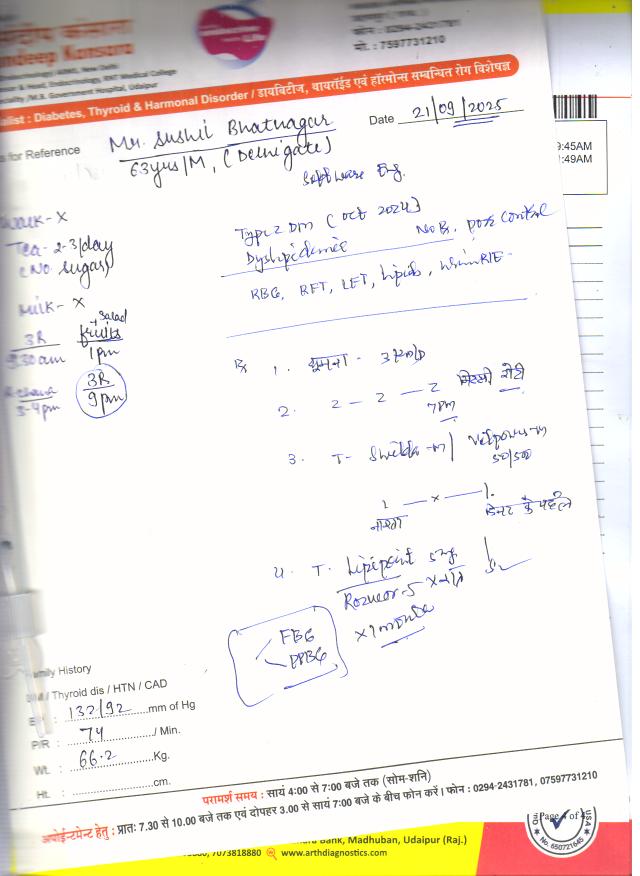 फोन : 0294-2431781
मो. : 7597731210
ndeep Kansara
ENT Medical College
Government Hospital, Udaipur
alist : Diabetes, Thyroid & Harmonal Disorder / डायबिटीज, थायरॉईड एवं हॉरमोन्स सम्बन्धित रोग विशेषज्ञ
9:45AM
:49AM
s for Reference
Mr. Sushil Bhatnagar
Date 21/09/2025
63yrs/M, (Delhigate)
Software Eng.
Walk - X
Tea - 2-3/day
(No sugar)
Milk - X
3R
9:30am
+ Salad
fruits
1pm
3-4pm
3R
9pm
Type 2 DM (Oct 2024)
Dyslipidemia
No Rx. poor control
RBG, RFT, LFT, Lipids, Urine R/E
Rx 1.
2. 2 - 2 - 2 मिस्सी रोटी
7pm
3. T-
50/500
1 - x - 1.
नाश्ता
डिनर के पहले
4. T. 5mg
x 1 month
FBG
PPBG
Family History
DM / Thyroid dis / HTN / CAD
BP : 132/92 mm of Hg
P/R : 74 / Min.
Wt. : 66.2 Kg.
Ht. : cm.
परामर्श समय : सायं 4:00 से 7:00 बजे तक (सोम-शनि)
अपोईन्टमेन्ट हेतु : प्रातः 7.30 से 10.00 बजे तक एवं दोपहर 3.00 से सायं 7:00 बजे के बीच फोन करें । फोन : 0294-2431781, 07597731210
Bank, Madhuban, Udaipur (Raj.)
7073818880 www.arthdiagnostics.com
Page 4 of 4
No. 650721645